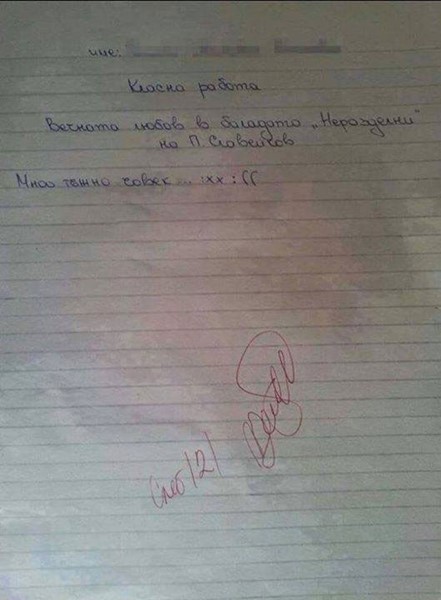 име:
Класна работа
Вечната любов в баладата „Неразделни"
на П. Славейков
Мноо тъжно човек ... :xx :((
Слаб /2/